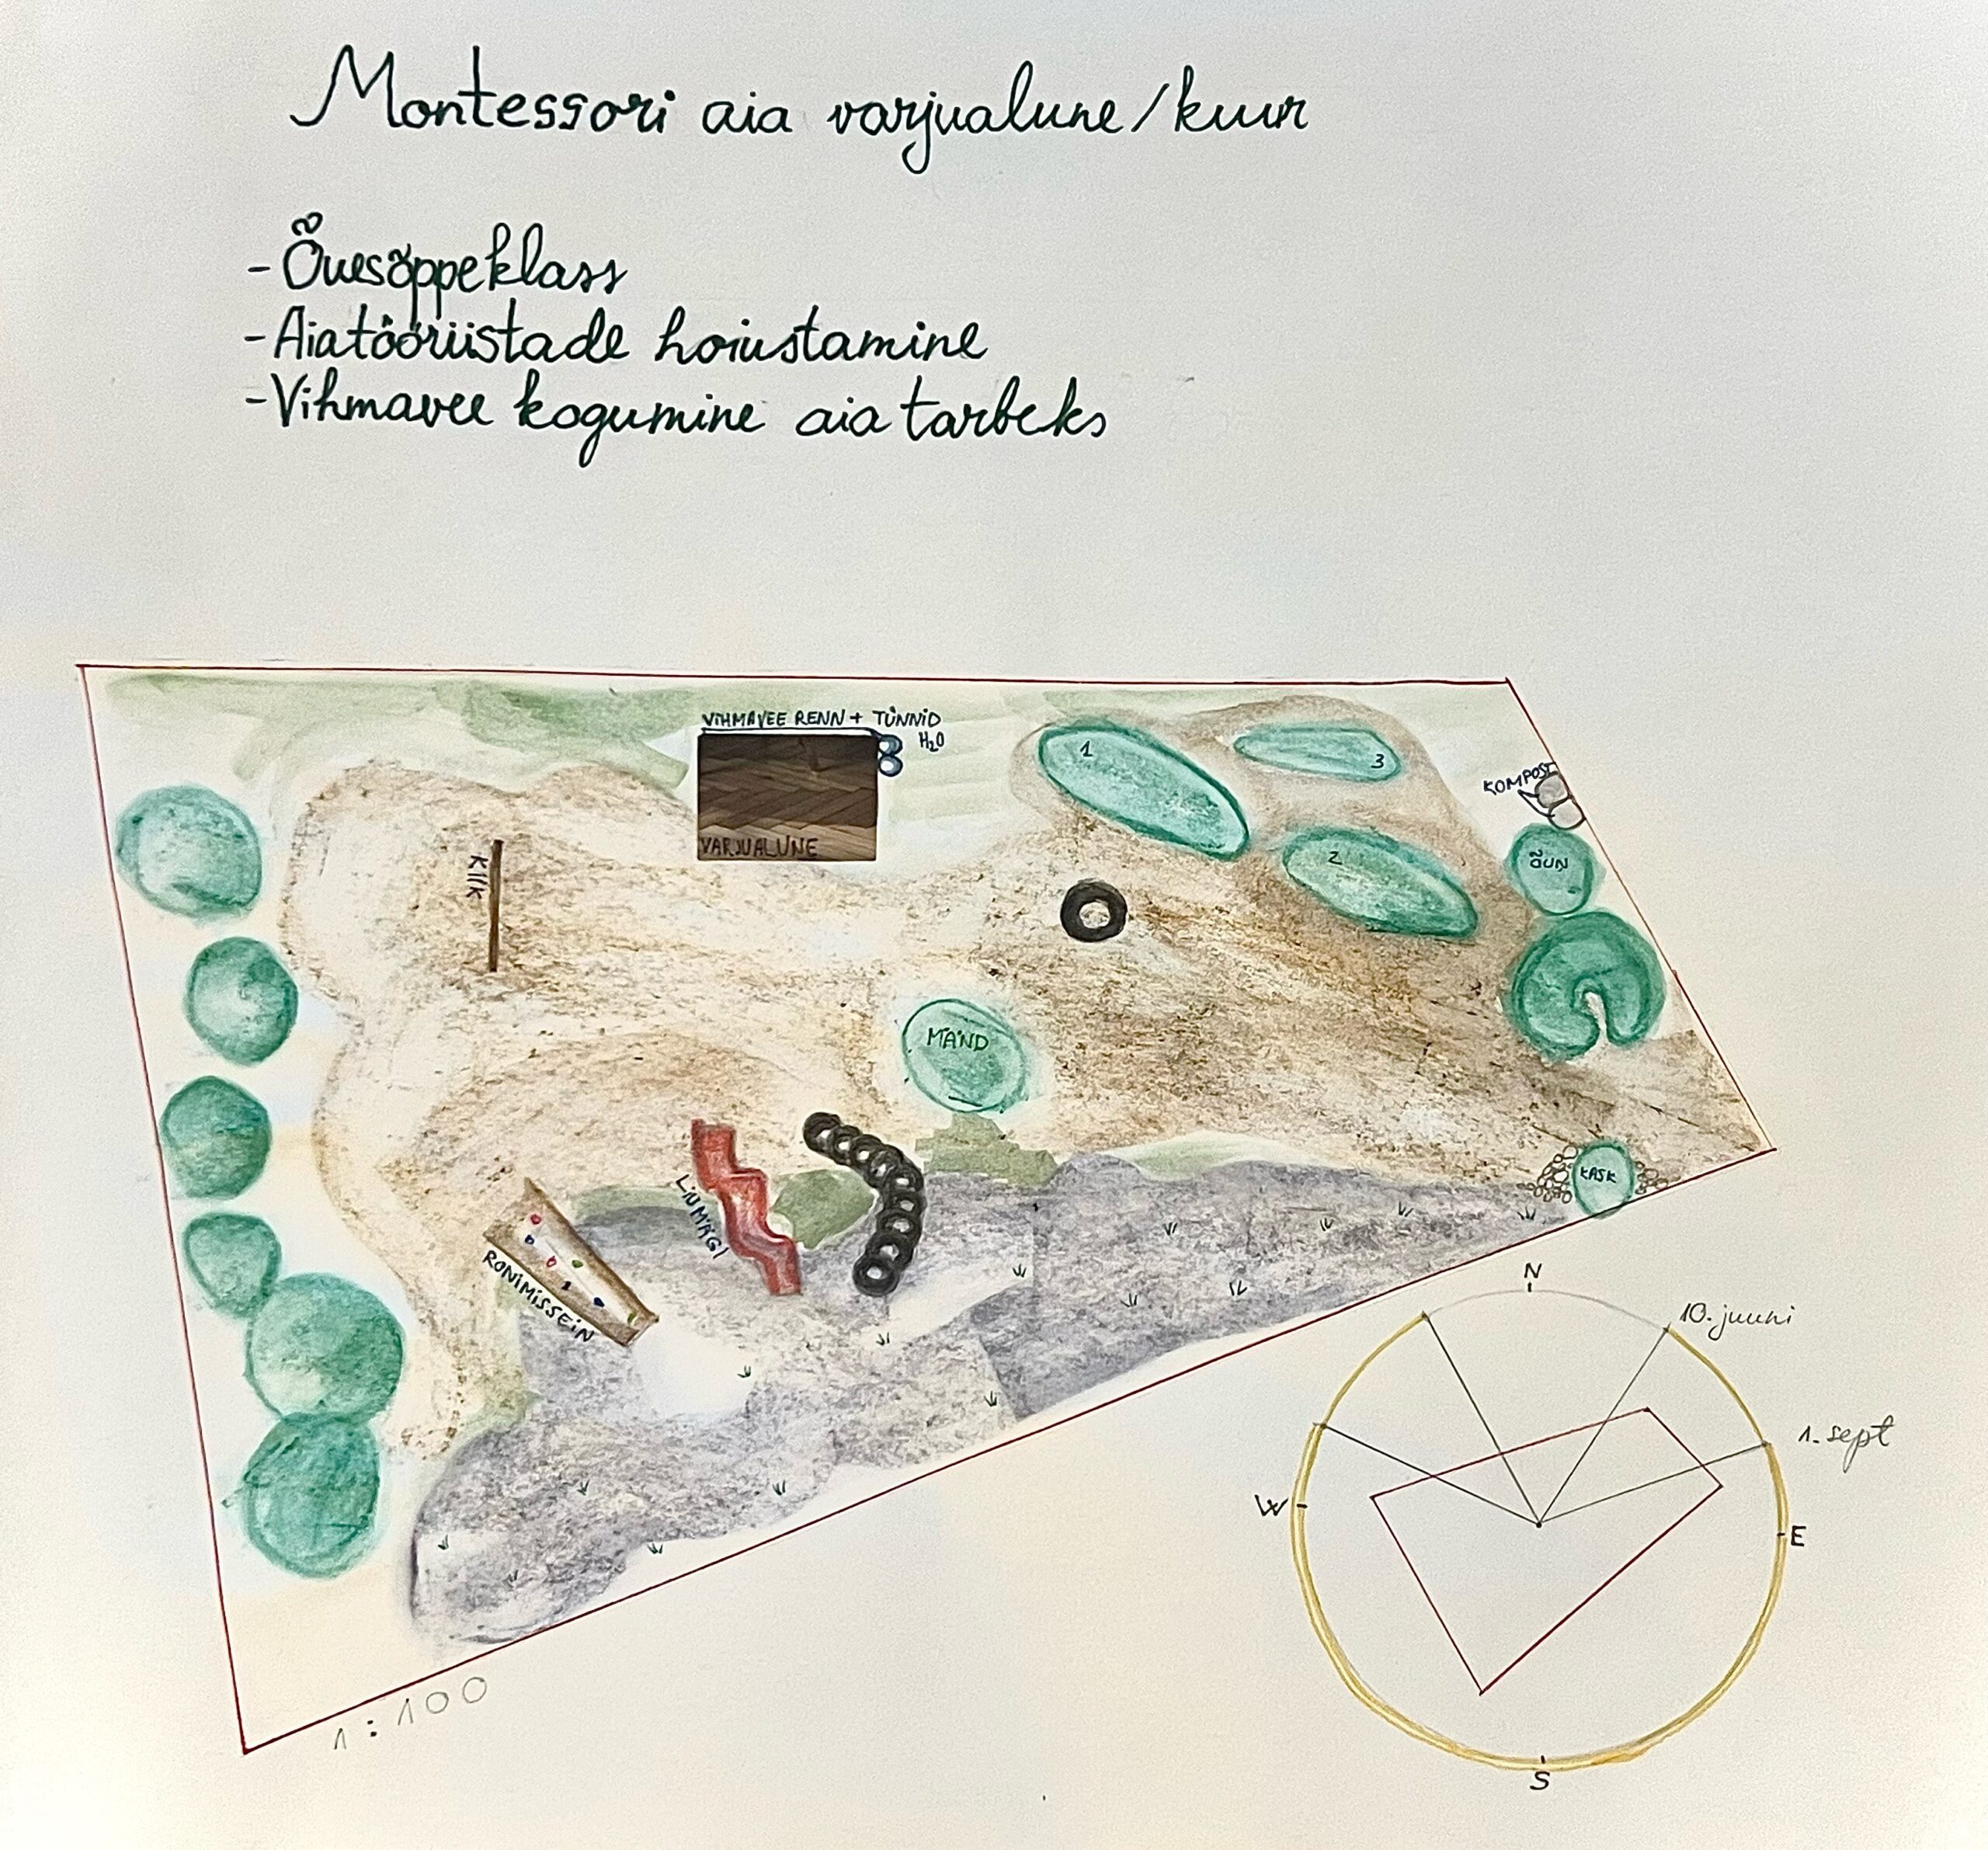 Montessori aia varjualune/kuur
- Õuesõppeklass
- Aiatööriistade hoiustamine
- Vihmavee kogumine aia tarbeks
VIHMAVEE RENN + TÜNNID
H₂O
VARJUALUNE
1
3
2
KOMPOST
ÕUN
KIIK
MÄND
KASK
LIUMÄGI
RONIMISSEIN
1:100
N
10. juuni
1. sept
W
E
S